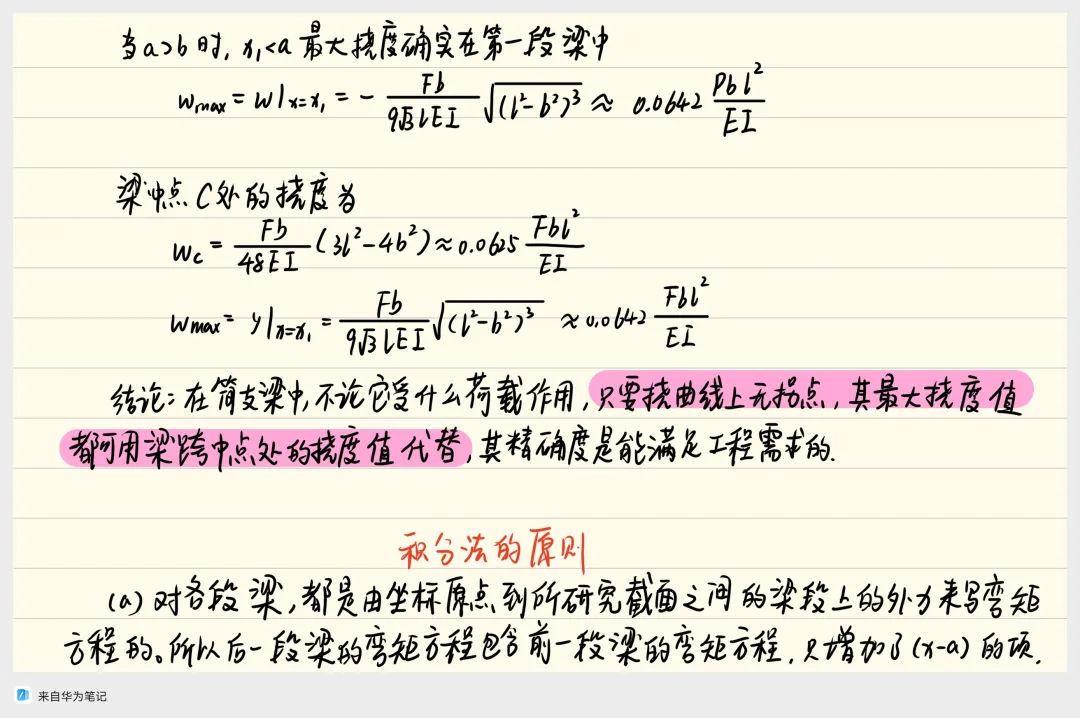 当a>b时, x₁<a 最大挠度确实在第一段梁中
wmax = w|x=x₁ = - Fb/(9√3 lEI) √(l²-b²)³ ≈ 0.0642 Pbl²/EI
梁中点C处的挠度为
wc = Fb/48EI (3l²-4b²) ≈ 0.0625 Fbl²/EI
wmax = y|x=x₁ = Fb/(9√3 lEI) √(l²-b²)³ ≈ 0.0642 Fbl²/EI
结论: 在简支梁中, 不论它受什么荷载作用, 只要挠曲线上无拐点, 其最大挠度值
都可用梁跨中点处的挠度值代替, 其精确度是能满足工程需求的.
积分法的原则
(a) 对各段梁, 都是由坐标原点到所研究截面之间的梁段上的外力来写弯矩
方程的。所以后一段梁的弯矩方程包含前一段梁的弯矩方程, 只增加了(x-a)的项.
来自华为笔记